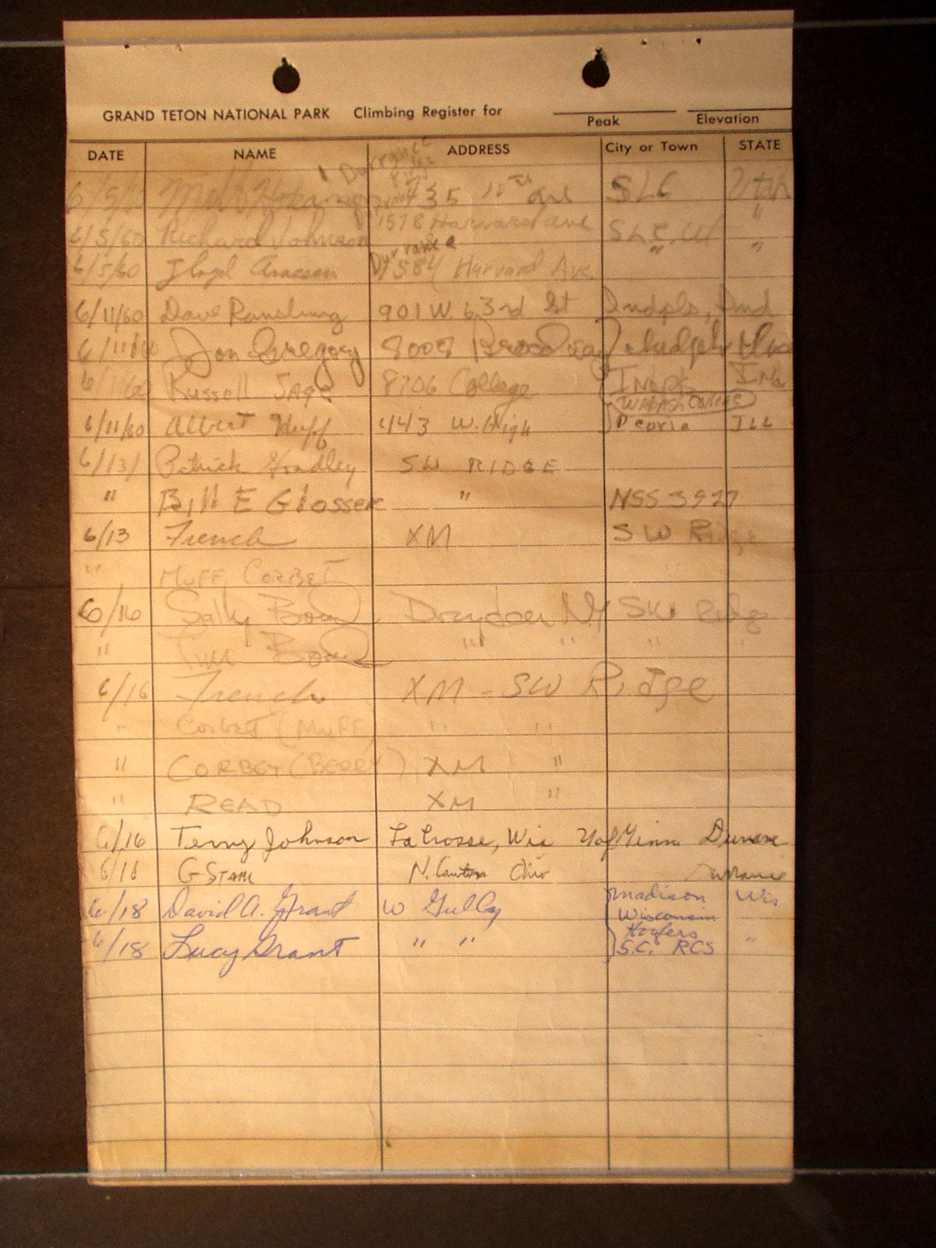 GRAND TETON NATIONAL PARK Climbing Register for
Peak Elevation
DATE NAME ADDRESS City or Town STATE
Durrance
Ridge
6/5/ 735 10th Ave SLC Utah
6/5/60 Richard Johnson 1578 Harvard ave SLC, Ut "
Durrance
6/5/60 Lloyd 1584 Harvard Ave " "
6/11/60 Dave Ransburg 901 W. 63rd St Indpls, Ind
6/11/60 Jon Gregory 9009 Broadway
6/11/60 Russell Sage 8706 College Indpls Ind.
Wabash College
6/11/60 Albert Huff 443 W. High Peoria ILL
6/13/ Patrick SW RIDGE
" Bill E Glosser " NSS 3927
6/13 French XM SW Ridge
" MUFF, CORBET " "
6/16 Sally SW Ridge
" Tim " " " "
6/16 French XM - SW Ridge
" Corbet (Muff) " "
" CORBET (BERRY) XM "
" READ XM "
6/16 Terry Johnson LaCrosse, Wis U of Minn
6/16 G STAHL N. Canton Ohio
6/18 David A. Grant W Gully Madison Wis
Wisconsin
Hoofers
6/18 Lucy Grant " " S.C. RCS "